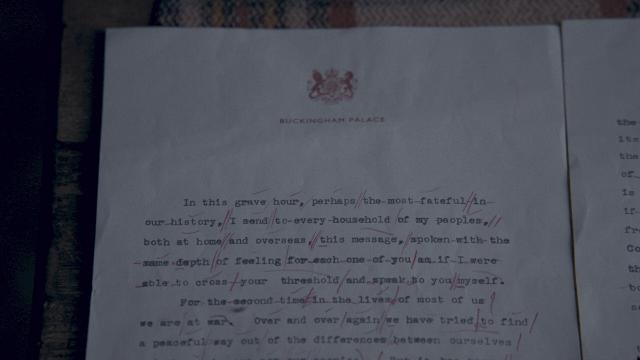 BUCKINGHAM PALACE
In this grave hour, perhaps the most fateful in
our history, I send to every household of my peoples,
both at home and overseas, this message, spoken with the
same depth of feeling for each one of you as if I were
able to cross your threshold and speak to you myself.
For the second time in the lives of most of us
we are at war. Over and over again we have tried to find
a peaceful way out of the differences between ourselves
the
its
the
of
is
if